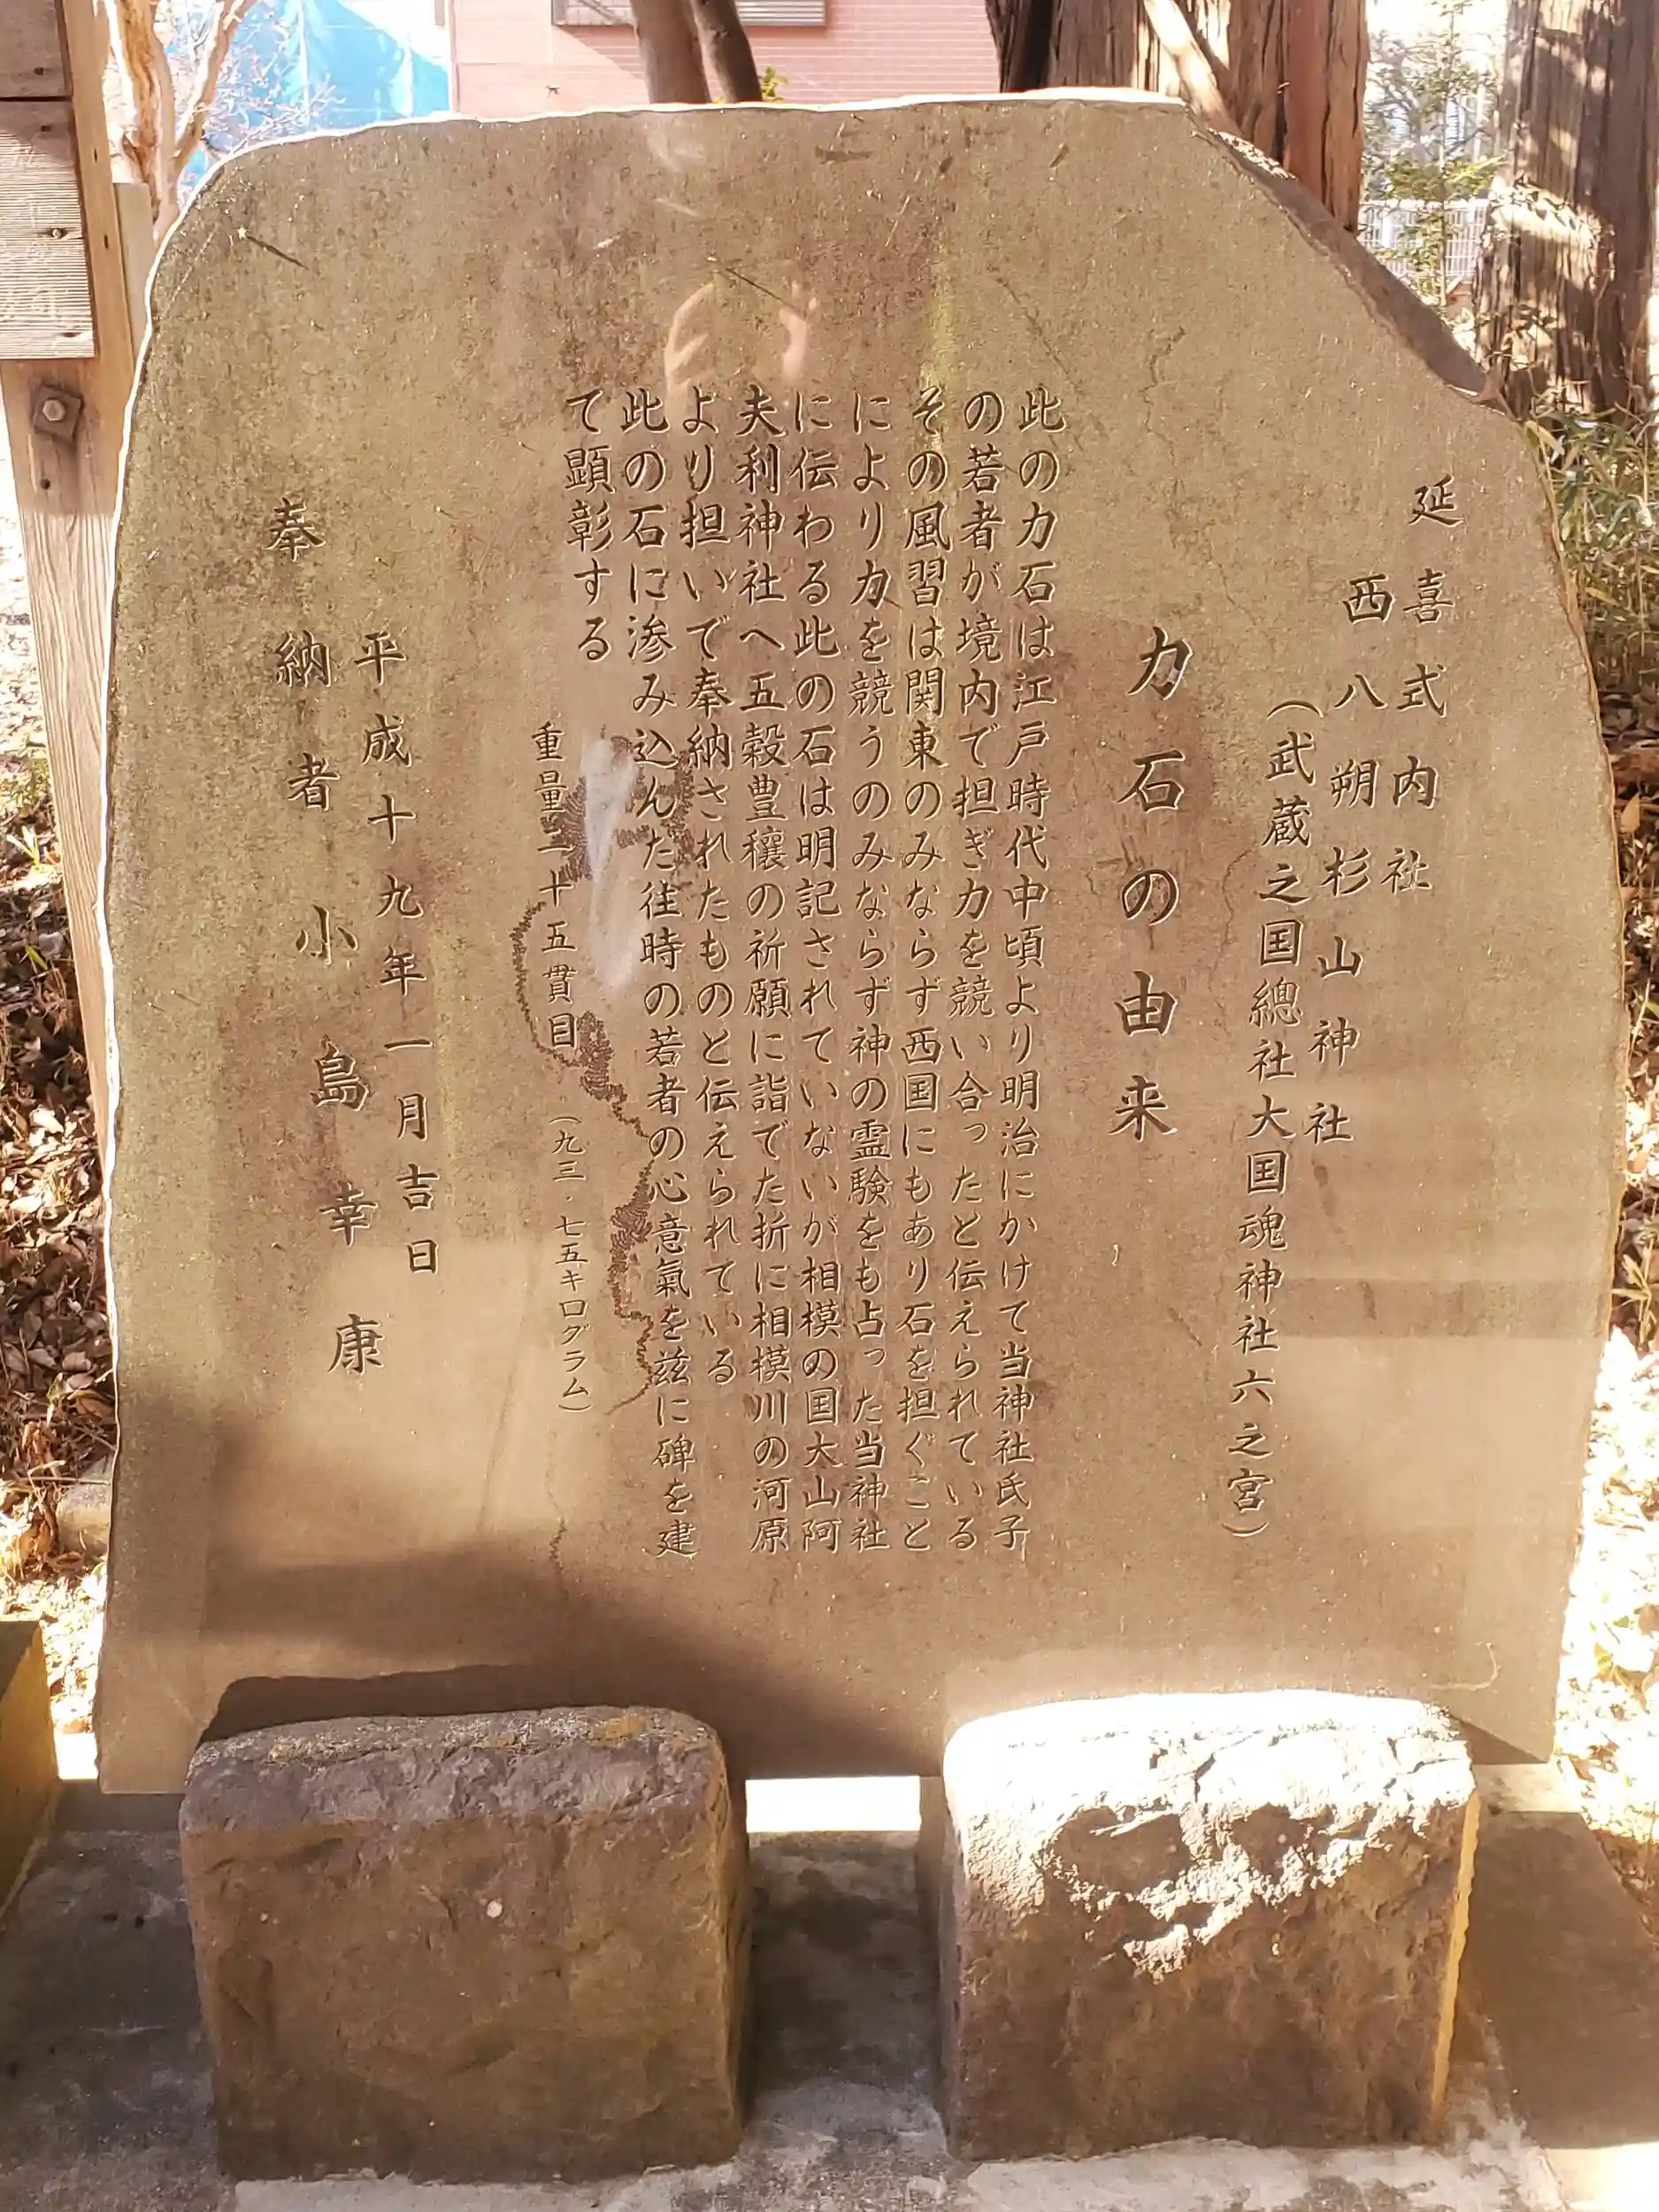 延喜式内社
西八朔杉山神社
（武蔵之国總社大国魂神社六之宮）
力石の由来
此の力石は江戸時代中頃より明治にかけて当神社氏子
の若者が境内で担ぎ力を競い合ったと伝えられている
その風習は関東のみならず西国にもあり石を担ぐこと
により力を競うのみならず神の霊験をも占った当神社
に伝わる此の石は明記されていないが相模の国大山阿
夫利神社へ五穀豊穣の祈願に詣でた折に相模川の河原
より担いで奉納されたものと伝えられている
此の石に滲み込んだ往時の若者の心意氣を茲に碑を建
て顕彰する
重量二十五貫目（九三．七五キログラム）
平成十九年一月吉日
奉納者小島幸康